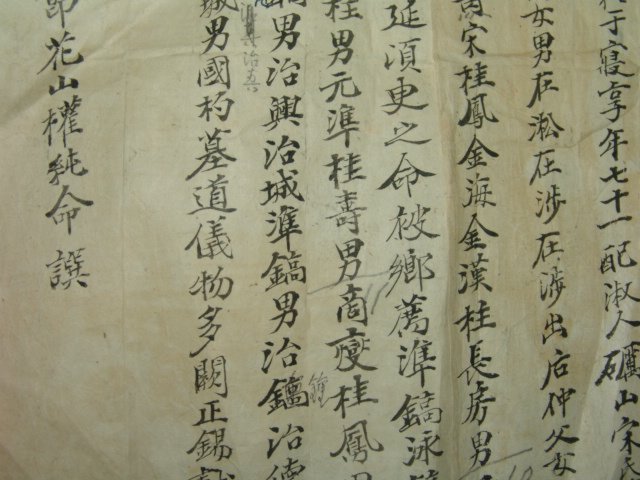 于寢享年七十一配淑人礪山宋氏
女男在淞在涉在涉出后仲父女
宋桂鳳金海金漢桂長房男
延須更之命被鄉薦準鎬泳
桂男元準桂壽男商燮桂鳳男
男治興治城準鎬男治鎬治
男國杓墓道儀物多闕正錫
花山權純命 譔